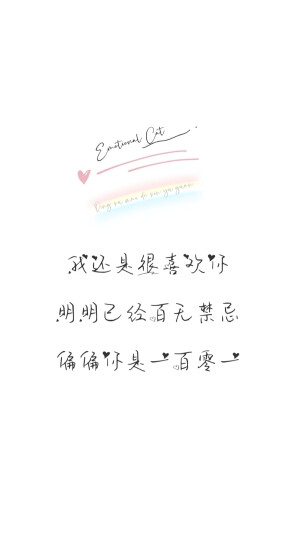 Emotional Cat
我还是很喜欢你
明明已经百无禁忌
偏偏你是一百零一